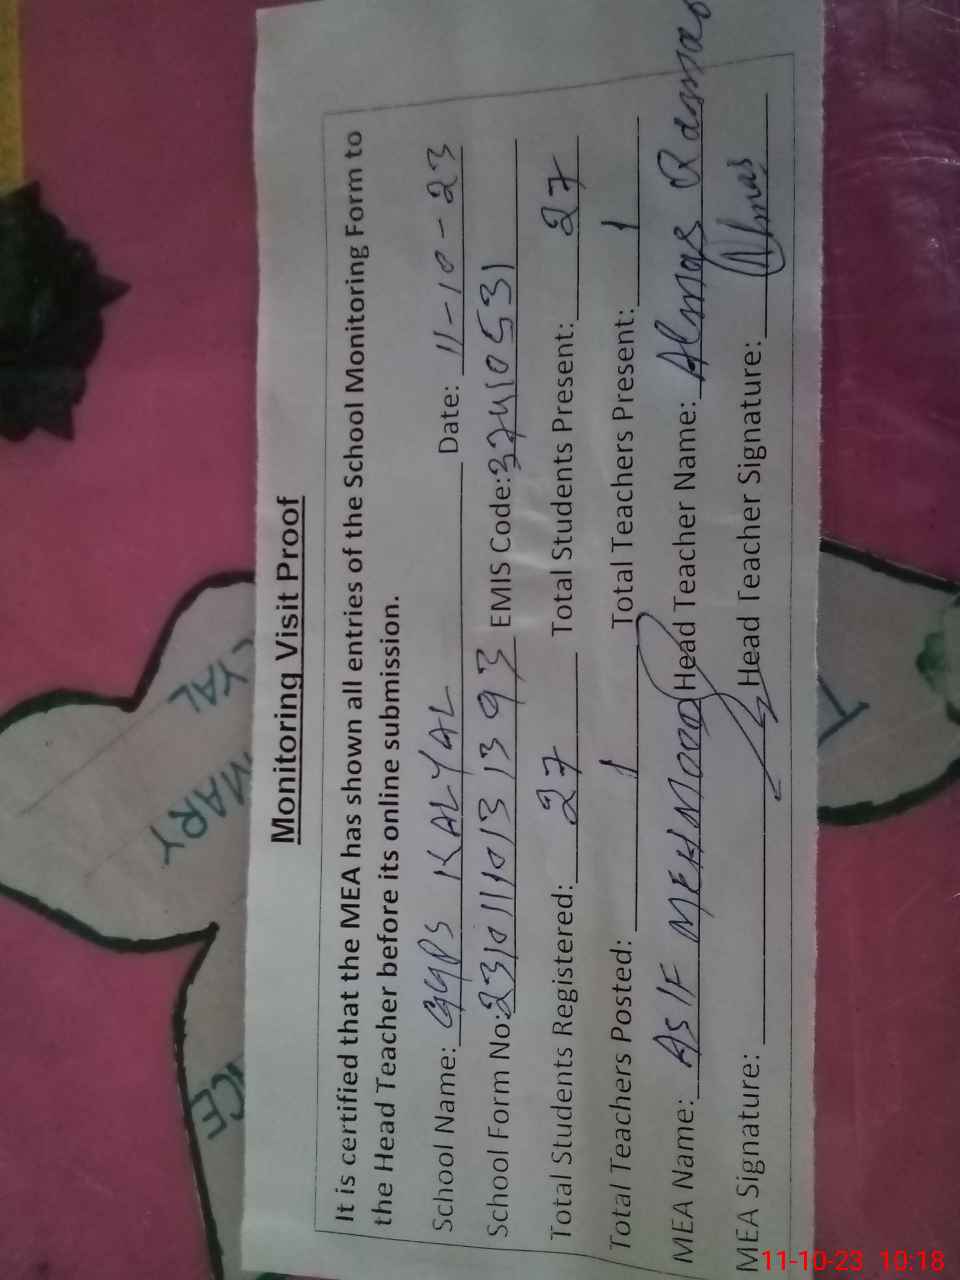 Monitoring Visit Proof
It is certified that the MEA has shown all entries of the School Monitoring Form to
the Head Teacher before its online submission.
School Name: GGPS KALYAL Date: 11-10-23
School Form No: 2310111013 13 93 EMIS Code: 37410531
Total Students Registered: 27 Total Students Present: 27
Total Teachers Posted: 1 Total Teachers Present: 1
MEA Name: ASIF MEHMOOD Head Teacher Name: Almas
MEA Signature: Head Teacher Signature: Almas
YAL
MARY
ICE
11-10-23 10:18